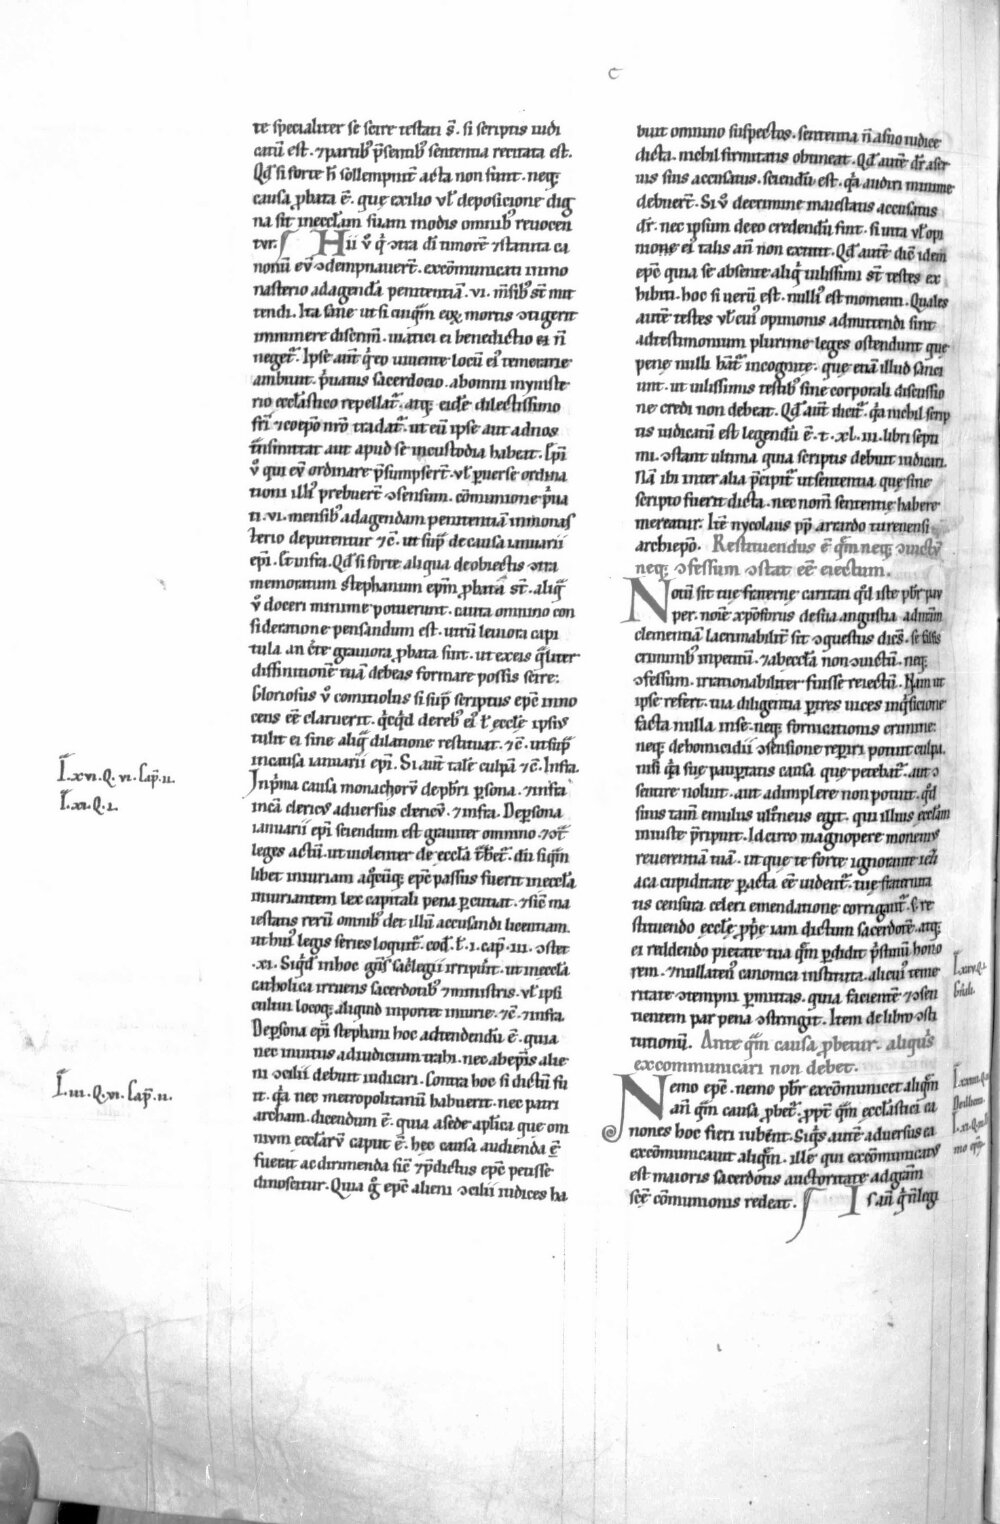 c
te specialiter se scire testati s̄. si scriptis iudi
catū est. ⁊ partib; p̄sentib; sententia recitata est.
Qd̄ si forte h̄ sollempnit̄ acta non sunt. neq;
causa ꝓbata ē. que exilio ul̄ deposicione dig
na sit in eccl̄am suam modis omnib; reuocen
tur. Hii ū q̇ ɔtra dī timorē ⁊ statuta ca
nonū eū ɔdempnauer̄t. excōmunicati in mo
nasterio ad agendā penitentiā .vi. m̄sib; st̄ mit
tendi. Ita sane ut si cuiq̄m eoꝝ mortis ɔtigerit
imminere discrim̄. uiatici ei benedictio ei n̄
neget᷑. Ipse aut̄ q̇ eo uiuente locū ei᷒ temerarie
ambiunt. ṗuatus sacerdocio. ab omni myniste
rio eccl̄astico repellat᷑. atq; eidē dilectissimo
fr̄i ⁊ coep̄o nr̄o tradat᷑. ut eū ipse aut ad nos
t̄nsmittat aut apud se in custodia habeat. Ep̄i
ū qui eū ordinare p̄sumpser̄t. ul̄ peruerse ordina
tioni illi᷒ prebuer̄t ɔsensum. cōmunione ṗua
ti .vi. mensib; ad agendam penitentiā in monas
terio deputentur ⁊c̄. ut sup̄ de causa ianuarii
ep̄i. Et infra. Qd̄ si forte aliqua de obiectis ɔtra
memoratum stephanum ep̄m ꝓbata st̄. aliq̄
ū doceri minime potuerunt. cauta omnino con
sideratione pensandum est. utrū leuiora capi
tula an c̄te grauiora ꝓbata sint. ut ex eis q̄liter
diffinitionē tuā debeas formare possis scire.
Gloriosus ū commolus si sup̄ scriptus ep̄c inno
cens eē claruerit. q̇cq̇d de reb; ei᷒ ul̄ eccl̄e ipsi᷒
tulit ei sine aliq̄ dilatione restituat. ⁊c̄. ut sup̄
in causa ianuarii ep̄i. Si aut̄ tale culpā ⁊c̄. Infra.
In ṗma causa monachorū de pb̄ri ꝑsona. ⁊ infra
incā clericus aduersus clericū. ⁊ infra. De ꝑsona
ianuarii ep̄i sciendum est grauiter omnino ⁊ ɔt̄
leges actū. ut uiolenter de eccl̄a t̄het᷑. dū si q̄m
libet iniuriam aq̇cūq; ep̄c passus fuerit in eccl̄a
iniuriantem lex capitali pena ꝑcutiat. ⁊ sic̄ ma
iestatis rerū omnib; det illū accusandi licentiam.
ut hui᷒ legis series loquit᷑. cod̄. l̄. i. cap̄. iii. ɔstet
.xi. Siq̇d in hoc gn̄s sac̄legii irrip̄it. ut in eccl̄a
catholica irruens sacerdotib; ⁊ ministris. ul̄ ipsi
cultui locoq; aliquid importet iniurie. ⁊c̄. ⁊ infra.
De ꝑsona ep̄i stephani hoc adtendendū ē. quia
nec inuitus ad iudicium trahi. nec ab ep̄is alie
ni ɔcilii debuit iudicari. Contra hoc si dictū fu
it. q̇a nec metropolitanū habuerit. nec patri
archam. dicendum ē. quia a sede apl̄ica que om
nium eccl̄arū caput ē. hec causa audienda ē
fuerat ac dirimenda sic̄ ⁊ p̄dictus ep̄c petisse
dinoscitur. Quia g̊ ep̄c alieni ɔcilii iudices ha
I. xvi. Q. vi. Cap̄. ii.
I. xi. Q. i.
I. iii. Q. vi. Cap̄. ii.
buit omnino suspectos. sententia n̄ a suo iudice
dicta. nichil firmitatis obtineat. Qd̄ autē dr̄ aser
uis suis accusatus. sciendū est. q̇a audiri minime
debuer̄t. Si ū de crimine maiestatis accusatus
dr̄. nec ipsum de eo credendū sint. si uita ul̄ opi
mone ei᷒ talis an̄ non extitit. Qd̄ autē dic̄ idem
ep̄c quia se absente aliq̇ uilissimi st̄ testes ex
hibiti. hoc si uerū est. nulli᷒ est momenti. Quales
autē testes ul̄ cui᷒ opinionis admittendi sint
ad testimonium plurime leges ostendunt que
pene nulli hn̄t᷑ incognite. que etiā illud sanci
unt. ut uilissimis testib; sine corporali discussio
ne credi non debeat. Qd̄ aut̄ dicit᷑. q̇a nichil scrip
tis iudicatū est legendū ē. t. xl. iii. libri septi
mi. ɔstant ultima quia scriptis debuit iudicari.
Nā ibi inter alia p̄cipit᷑ ut sententia que sine
scripto fuerit dicta. nec nom̄ sententie habere
mereatur. Itē nycolaus pp̄ arrardo turenensi
archiep̄o. Restituendus ē q̄m neq; ɔuictū
neq; ɔfessum ɔstat eē eiectum.
Notū sit tue fraterne caritati q̇d iste pb̄r pau
per. noīe xp̄oforus de sua angustia ad nr̄am
clementiā lacrimabilit᷑ sit ɔquestus dicēs. se falsis
criminib; inpetitū. ⁊ ab eccl̄a non ɔuictū. neq;
ɔfessum. irrationabiliter fuisse reiectū. Nam ut
ipse refert. tua diligentia ꝑ tres uices inq̇sicione
facta nulla in se. neq; fornicationis crimine.
neq; de homicidii ɔstensione rep̄iri potuit culpa.
nisi q̇a sue paupertatis causa que petebat᷑. aut ɔ
sentire noluit. aut adimplere non potuit. q̇d
suus tam̄ emulus ult̄neus egit. qui illius eccl̄am
iniuste p̄ripuit. Idcirco magnopere monemus
reuerentiā tuā. ut que te forte ignorante ichi
aca cupiditate ꝑacta eē uident᷑. tue fraternita
tis censura celeri emendatione corrigant᷑. ⁊ re
stituendo eccl̄e ꝓp̄e iam dictum sacerdotē. atq;
ei reddendo pietate tua q̄m ꝑdidit ṗstinū hono
rem. ⁊ nullaten᷒ canonica instituta. alicui᷒ teme
ritate ɔtempni ꝑmittas. quia facientē ⁊ ɔsen
tientem par pena ɔstringit. Item de libro ɔsti
tutionū. Ante q̄m causa ꝓbetur. aliquis
excommunicari non debet.
Nemo ep̄c. nemo pb̄r excōmunicet aliq̄m
an̄ q̄m causa ꝓbet᷑. ꝓpt̄ q̄m eccl̄astici ca
nones hoc fieri iubēnt. Siq̇s autē aduersus ea
excōmunicauit aliq̄m. ille qui excōmunicatus
est maioris sacerdotis auctoritate ad gr̄am
sc̄e cōmunionis redeat. Is aū q̇ n̄ legi